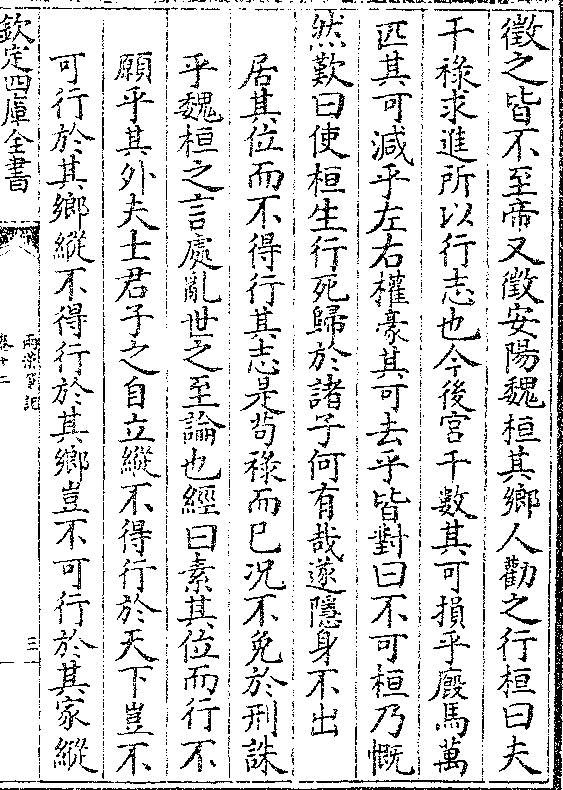 徵之皆不至帝又徵安陽魏桓其鄉人勸之行桓曰夫
干祿求進所以行志也今後宮千數其可損乎廏馬萬
匹其可減乎左右權豪其可去乎皆對曰不可桓乃慨
然歎曰使桓生行死歸於諸子何有哉遂隱身不出
居其位而不得行其志是茍祿而已况不免於刑誅
乎魏桓之言處亂世之至論也經曰素其位而行不
願乎其外夫士君子之自立縱不得行於天下豈不
可行於其鄉縱不得行於其鄉豈不可行於其家縱
欽定四庫全書
兩溪筆記
卷十二
三